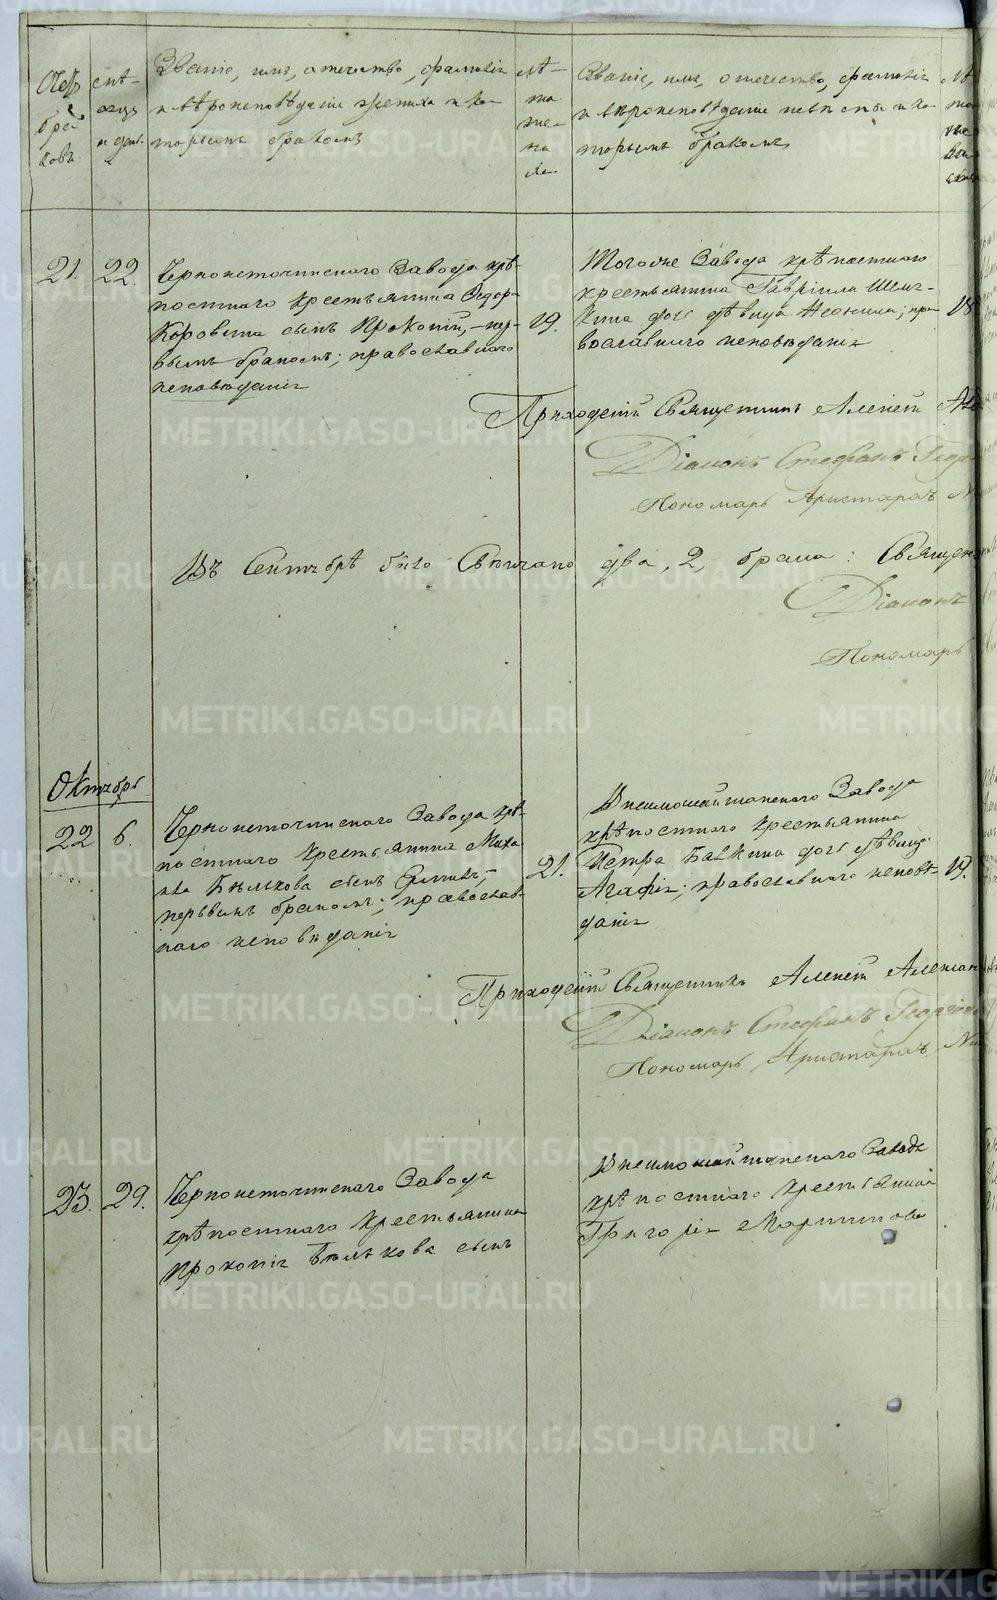 Счетъ браковъ
Мѣсяцъ и день.
Званіе, имя, отечество, фамилія
и вѣроисповѣданіе жениха и ко-
торымъ бракомъ
Лѣ-
та
же-
ни-
ха.
Званіе, имя, отечество, фамилія
и вѣроисповѣданіе невѣсты и ко-
торымъ бракомъ
21. 22.
Черноисточинскаго Завода крѣ-
постнаго крестьянина Ѳедора
Коровина сынъ Прокопій, – пер-
вымъ бракомъ; православнаго
исповѣданія
19.
Тогоже Завода крѣпостнаго
крестьянина Гавріила
дочь дѣвица; пра-
вославнаго исповѣданія
18
Приходскій Священникъ Алексѣй
Діаконъ Стефанъ
Пономарь Аристархъ
Въ Сентябрѣ было Свѣнчано два, 2, брака: Священ
Діаконъ
Пономарь
Октябрь
22 6.
Черноисточинскаго Завода крѣ-
постнаго крестьянина Миха
Бѣлькова сынъ –
первымъ бракомъ; православ-
наго исповѣданія
21.
Висимошайтанскаго Завода
крѣпостнаго крестьянина
Петра дочь дѣвица
Агафія; православнаго исповѣ-
данія
19.
Приходскій Священникъ Алексѣй Алексан
Діаконъ Стефанъ Георгіе
Пономарь Аристархъ
23. 29.
Черноисточинскаго Завода
крѣпостнаго крестьянина
Прокопія Бѣлькова сынъ
Висимошайтанскаго Завода
крѣпостнаго крестьянина
Григорія Мартынова
METRIKI.GASO-URAL.RU